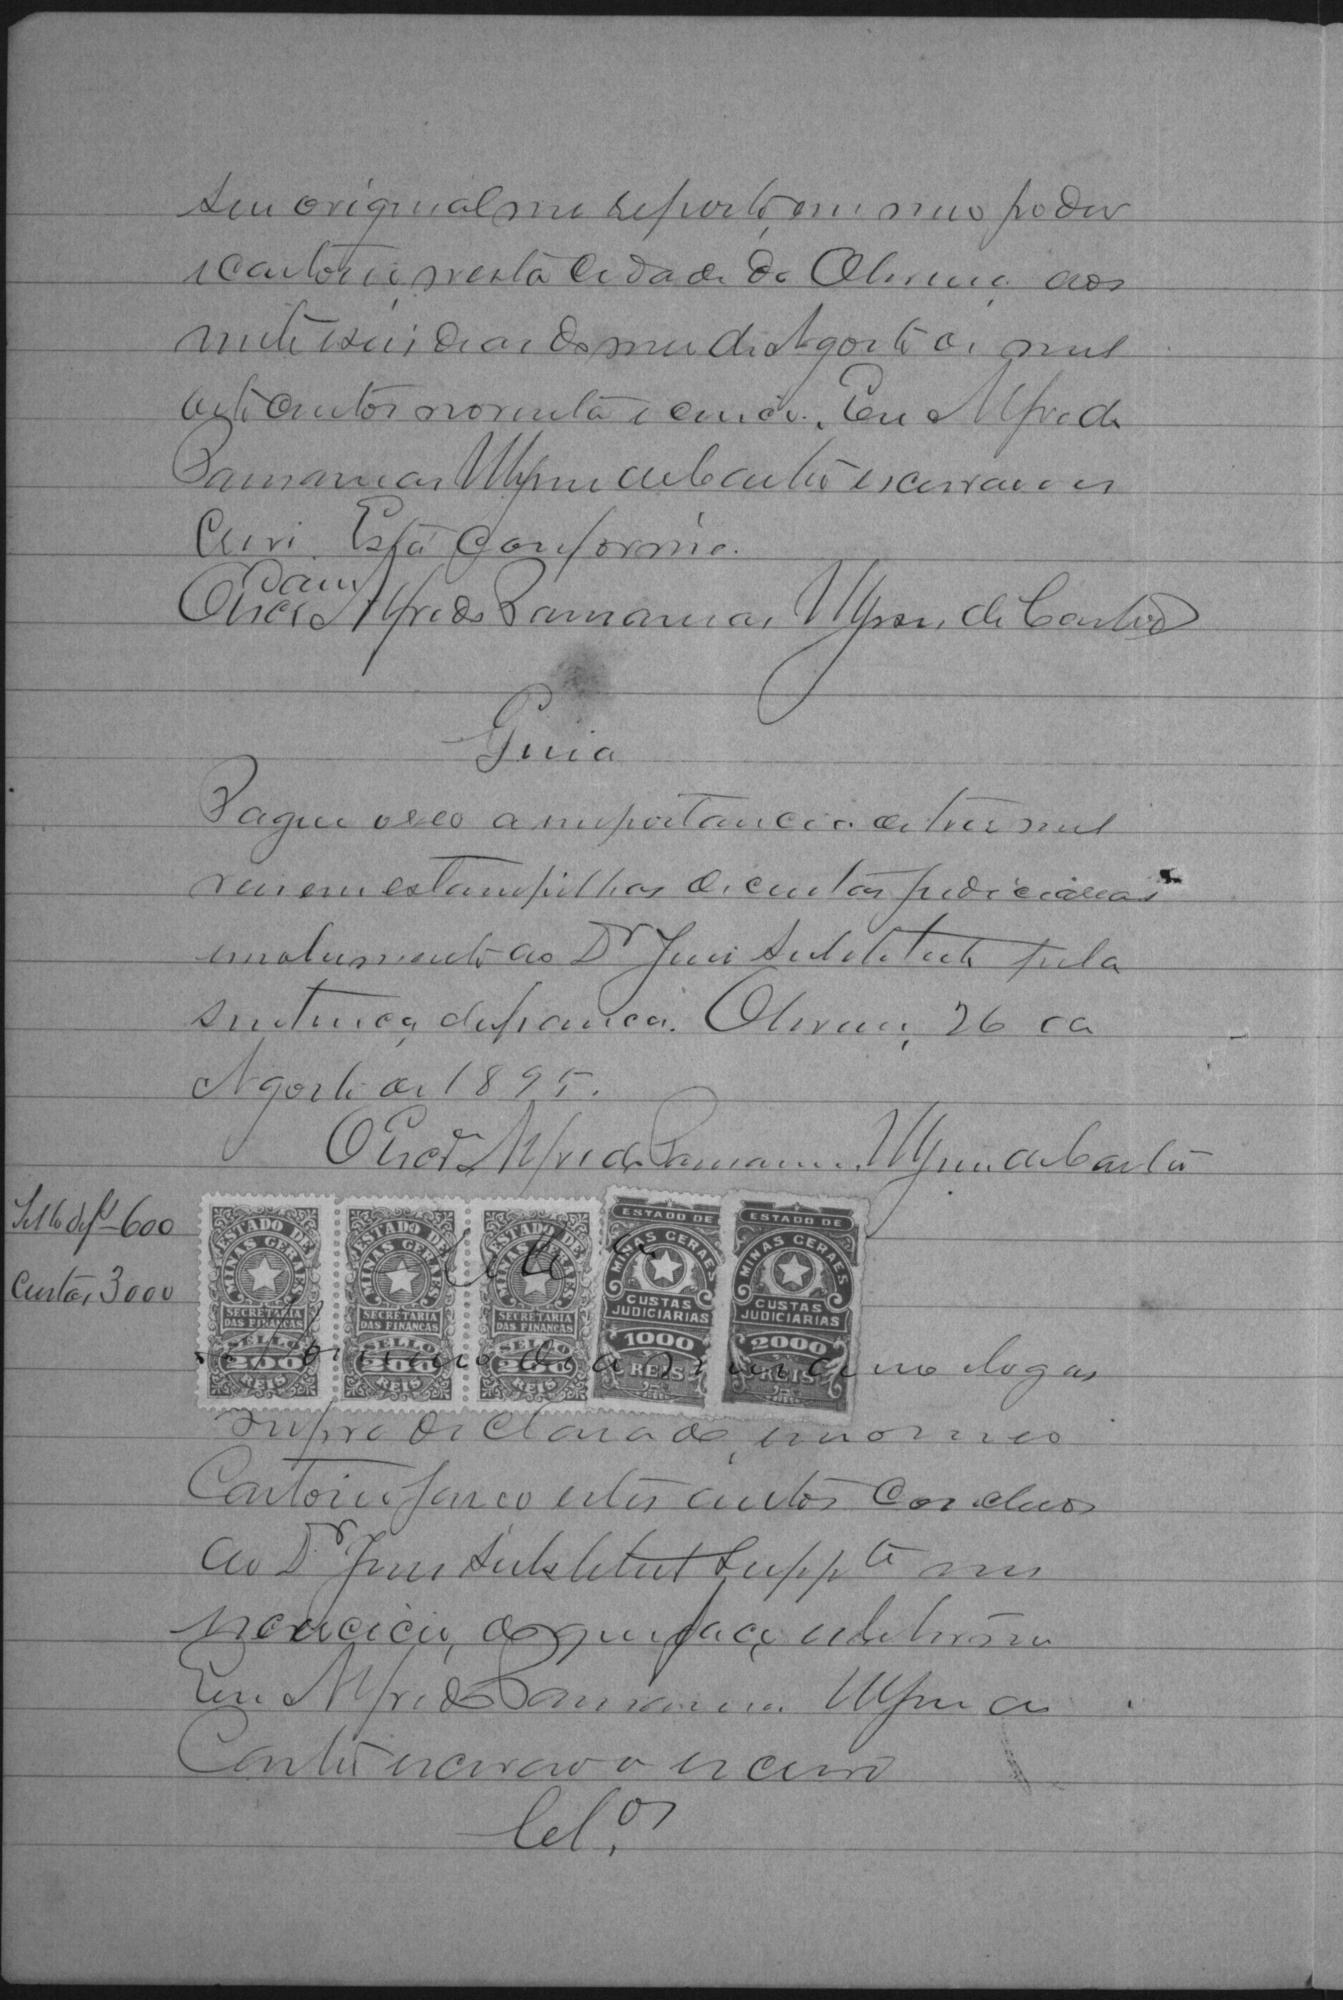 seu original me reporto, em meo poder
e cartorio, nesta Cidade de Oliveira, aos
vinte e seis dias do mez de Agosto de mil
oito centos noventa e cinco. Eu Alfredo
de Castro escrivão o es
crevi. Está conforme.
Alfredo de Castro
Guia
Pague o reo a importancia de tres mil
reis em estampilhas de custas judiciarias
emolumento ao Dr Juiz Substituto pela
sentença de fiança. Oliveira, 26 de
Agosto de 1895.
O Escr.m Alfredo de Castro
Sello de fl 600
Custas 3000
ESTADO DE MINAS GERAES SECRETARIA DAS FINANCAS SELLO 200 REIS
ESTADO DE MINAS GERAES SECRETARIA DAS FINANCAS SELLO 200 REIS
ESTADO DE MINAS GERAES SECRETARIA DAS FINANCAS SELLO 200 REIS
ESTADO DE MINAS GERAES CUSTAS JUDICIARIAS 1000 REIS
ESTADO DE MINAS GERAES CUSTAS JUDICIARIAS 2000 REIS
mesmo dia mez anno e logar
supra declarado, em o meo
Cartorio faço estes autos conclusos
ao Dr Juiz Substituto Supp.te em
exercicio, do que faço este termo
Eu Alfredo de
Castro escrivão o escrevi
Cl.os